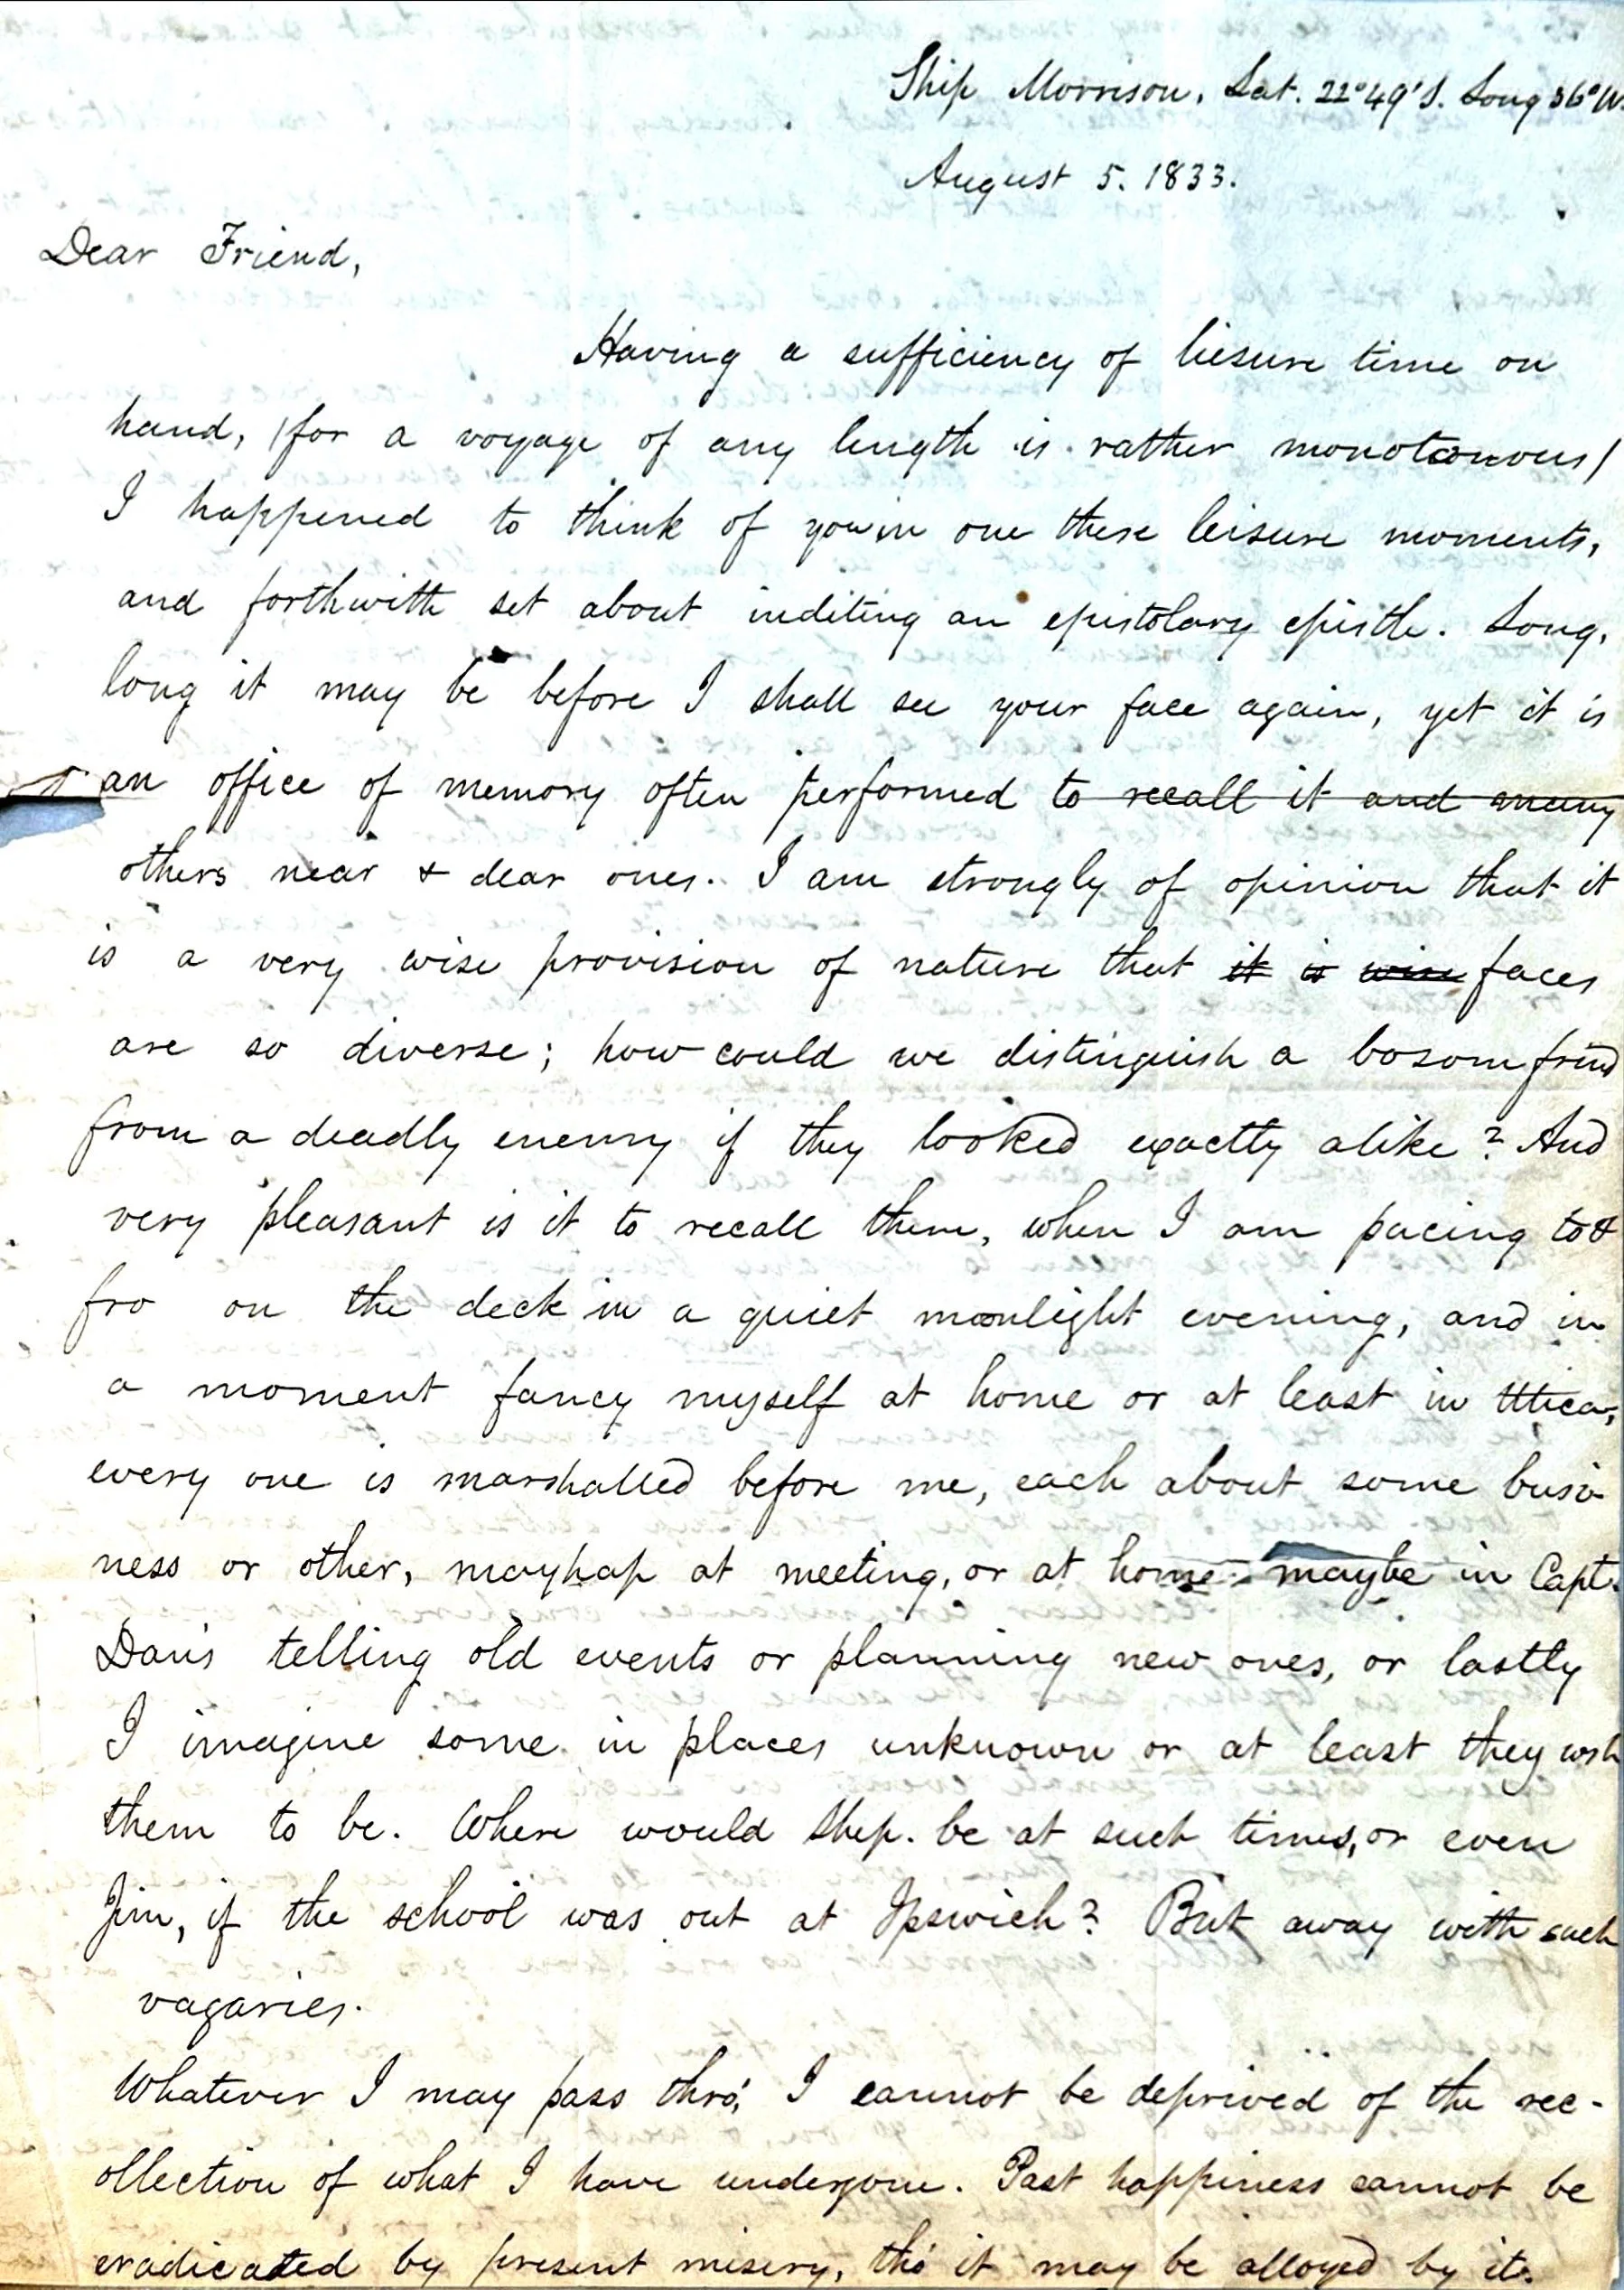 Ship Morrison, Lat. 22°49'S. Long 36°W.
August 5. 1833.
Dear Friend,
Having a sufficiency of liesure time on
hand, (for a voyage of any length is rather monotonous)
I happened to think of you in one these leisure moments,
and forthwith set about inditing an epistolary epistle. Long,
long it may be before I shall see your face again, yet it is
an office of memory often performed to recall it and many
others near & dear ones. I am strongly of opinion that it
is a very wise provision of nature that it is wise faces
are so diverse; how could we distinguish a bosom frind
from a deadly enemy if they looked exactly alike? And
very pleasant is it to recall them, when I am pacing to &
fro on the deck in a quiet moonlight evening, and in
a moment fancy myself at home or at least in Utica,
every one is marshalled before me, each about some busi-
ness or other, mayhap at meeting, or at home maybe in Capt.
Davis telling old events or planning new ones, or lastly
I imagine some in places unknown or at least they wish
them to be. Where would Shep. be at such times, or even
Jim, if the school was out at Ipswich? But away with such
vagaries.
Whatever I may pass thro', I cannot be deprived of the rec-
ollection of what I have undergone. Past happiness cannot be
eradicated by present misery, tho' it may be alloyed by it.